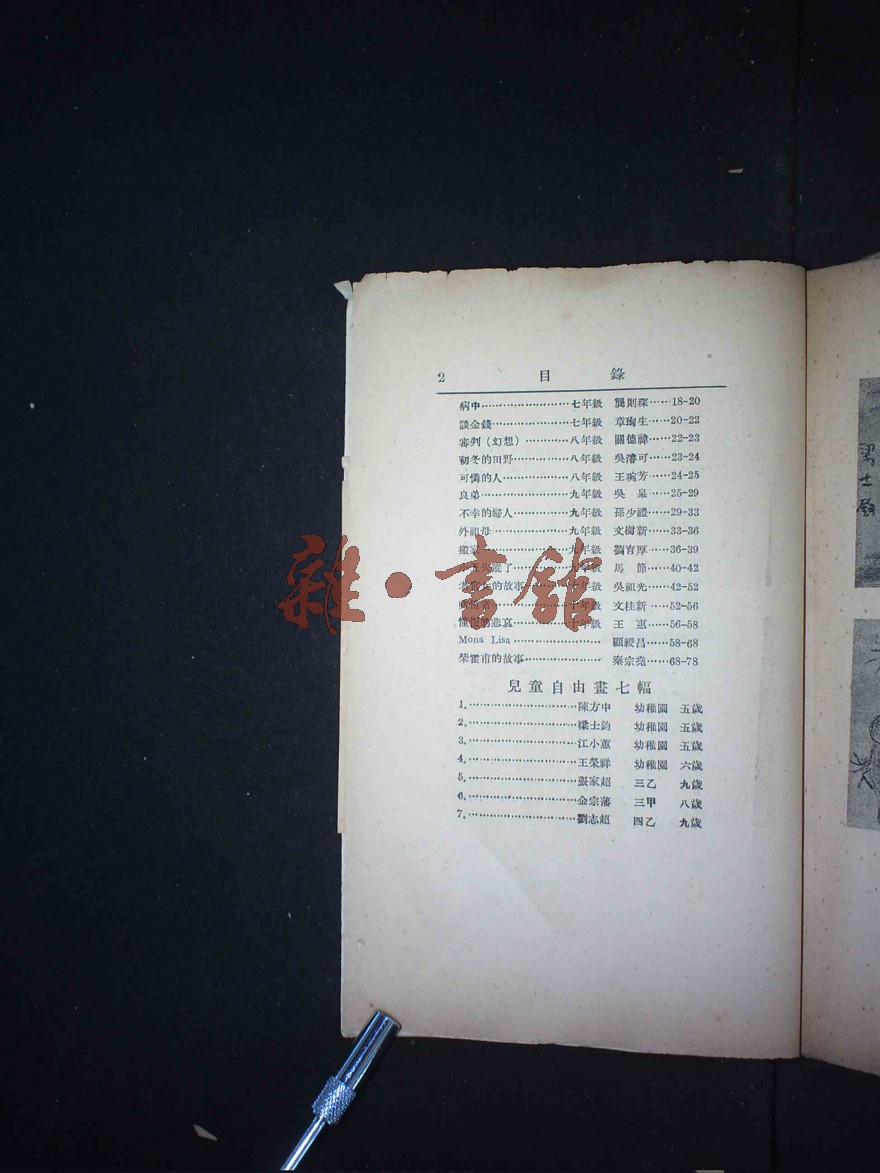 2 目錄
病中……………………七年級 龔則琛……18-20
談金錢…………………七年級 章珣生……20-22
審判（幻想）…………八年級 關德禕……22-23
初冬的田野……………八年級 吳濬可……23-24
可憐的人………………八年級 王琬芳……24-25
良弟……………………九年級 吳 泉……25-29
不幸的婦人……………九年級 孫少禮……29-33
外祖母…………………九年級 文樹新……33-36
搬家……………………九年級 劉育厚……36-39
失蹤了…………………年級 馬 節……40-42
的故事…………………年級 吳祖光……42-52
……………………十年級 文桂新……52-56
悲哀……………………十年級 王 惠……56-58
Mona Lisa…………………… 顧綬昌……58-68
榮霍甫的故事…………………… 秦宗堯……68-78
兒童自由畫七幅
1.……………………陳方中 幼稚園 五歲
2.……………………梁士鈞 幼稚園 五歲
3.……………………江小蕙 幼稚園 五歲
4.……………………王榮祥 幼稚園 六歲
5.……………………張家超 三乙 九歲
6.……………………金宗藩 三甲 八歲
7.……………………劉志超 四乙 九歲
雜·書館
梁士